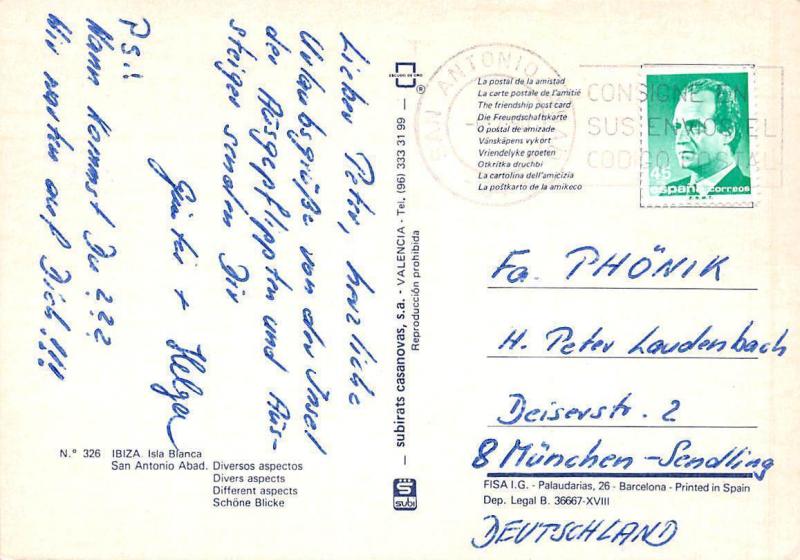 Lieber Peter, herzliche
Urlaubsgrüße von der Insel
der Ausgeflippten und Aus-
steiger senden Dir
Günter + Helga
Ps!!
Wann kommst Du ???
Wir warten auf Dich!!!
N.° 326 IBIZA. Isla Blanca
San Antonio Abad. Diversos aspectos
Divers aspects
Different aspects
Schöne Blicke
ESCUDO DE ORO
®
subirats casanovas, s.a. - VALENCIA - Tel. (96) 333 31 99
Reproducción prohibida
subi
La postal de la amistad
La carte postale de l'amitié
The friendship post card
Die Freundschaftskarte
O postal de amizade
Vänskäpens vykort
Vriendelyke groeten
Otkritka druchbi
La cartolina dell'amicizia
La poŝtkarto de la amikeco
SAN ANTONIO
CONSIGNE EN
SUS ENVIOS EL
CODIGO POSTAL
45
españa correos
Fa. PHÖNIK
H. Peter Laudenbach
Deiserstr. 2
8 München-Sendling
FISA I.G. - Palaudarias, 26 - Barcelona - Printed in Spain
Dep. Legal B. 36667-XVIII
DEUTSCHLAND